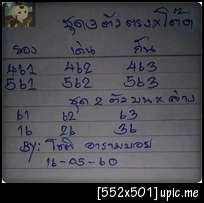 ชุด 3 ตัว ตรง x โต๊ด
รอง เด่น กั๊น
461 462 463
561 562 563
ชุด 2 ตัว บน x ล่าง
61 62 63
16 26 36
BY: โชติ อารามบอย
16-05-60
[552x501] upic.me